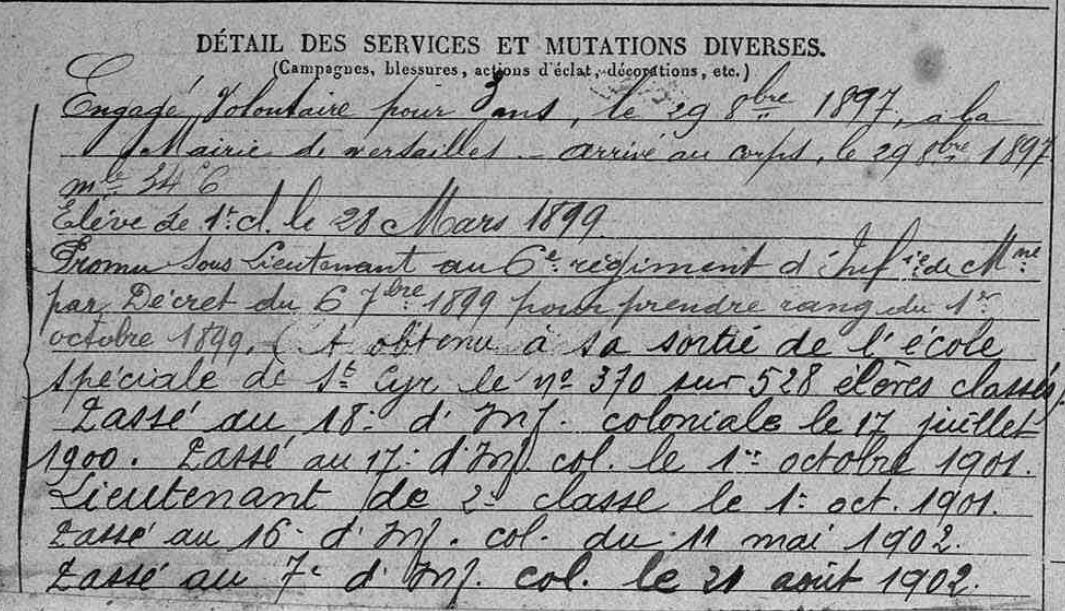 DÉTAIL DES SERVICES ET MUTATIONS DIVERSES.
(Campagnes, blessures, actions d'éclat, décorations, etc.)
Engagé Volontaire pour 3 ans, le 29 8bre 1897, à la
Mairie de versailles – arrivé au corps, le 29 8bre 1897
mle 546
Élève de 1re cl. le 28 Mars 1899.
Promu Sous Lieutenant au 6e régiment d'Infie de Mne
par Décret du 6 7bre 1899 pour prendre rang du 1er
octobre 1899. (A obtenu à sa sortie de l'école
spéciale de St Cyr le no 370 sur 528 élèves classés)
Passé au 18e d'Inf. coloniale le 17 juillet
1900. Passé au 17e d'Inf. col. le 1er octobre 1901.
Lieutenant de 2e classe le 1er oct. 1901.
Passé au 16e d'Inf. col. du 11 mai 1902.
Passé au 7e d'Inf. col. le 21 août 1902.